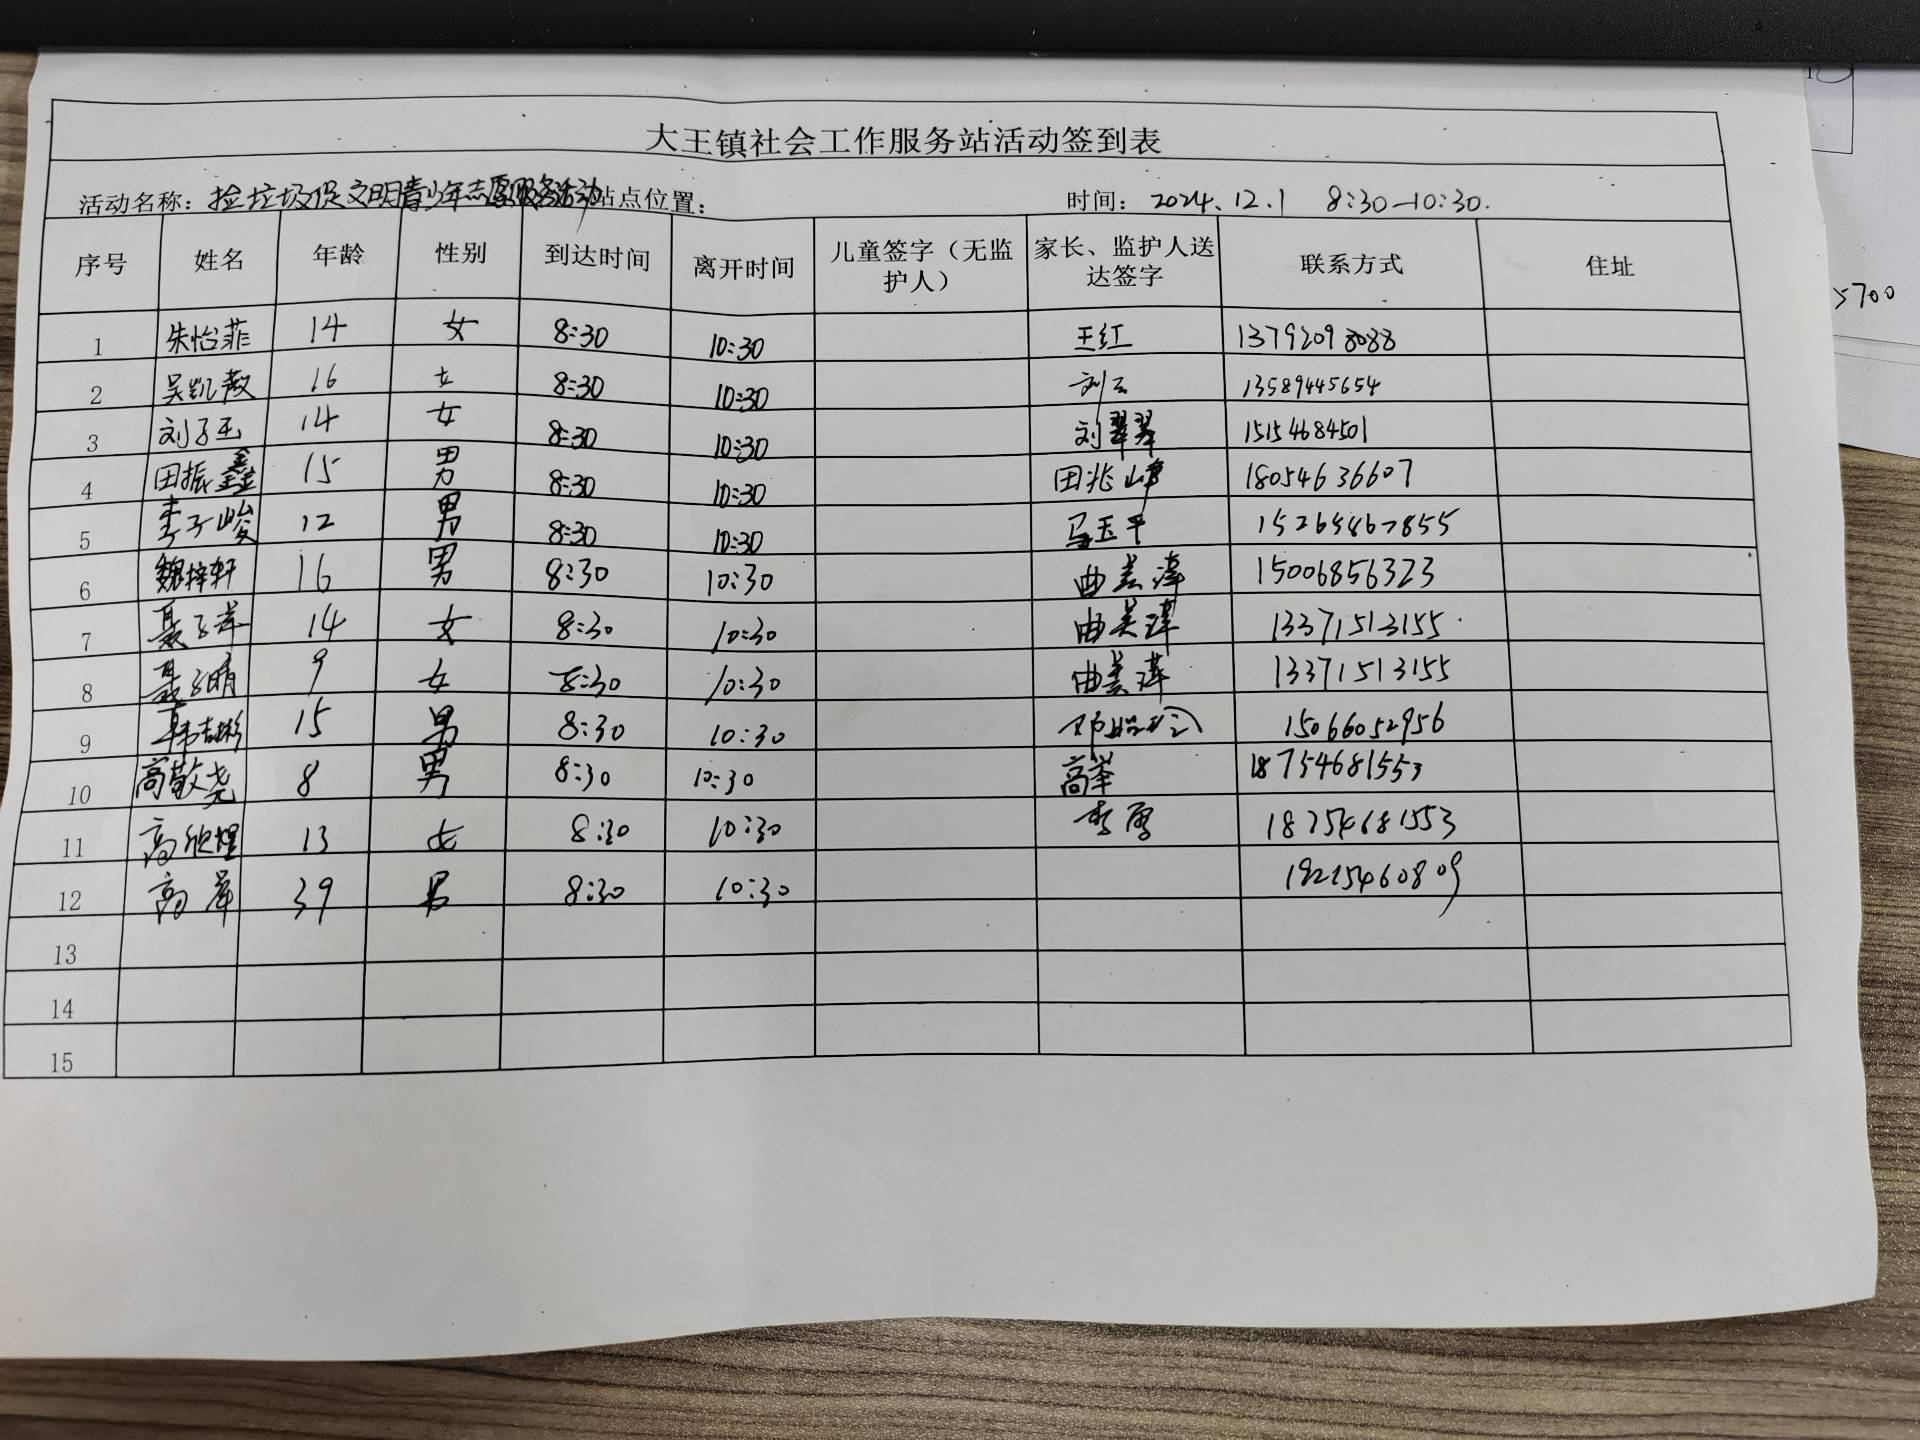 大王镇社会工作服务站活动签到表
活动名称：捡垃圾促文明青少年志愿服务活动 站点位置： 时间：2024.12.1 8:30-10:30.
序号 姓名 年龄 性别 到达时间 离开时间 儿童签字（无监护人） 家长、监护人送达签字 联系方式 住址
1 朱怡菲 14 女 8:30 10:30 王红 13792098088
2 吴凯 16 女 8:30 10:30 刘云 13589445654
3 刘子玉 14 女 8:30 10:30 刘翠翠 15154684501
4 田振鑫 15 男 8:30 10:30 田兆峰 18054636607
5 李子峻 12 男 8:30 10:30 马玉平 15265467855
6 魏梓轩 16 男 8:30 10:30 曲美萍 15006856323
7 聂子萍 14 女 8:30 10:30 曲美萍 13371513155
8 聂子晴 9 女 8:30 10:30 曲美萍 13371513155
9 韩志彬 15 男 8:30 10:30 15066052956
10 高敬尧 8 男 8:30 10:30 高峰 18754681553
11 高欣煜 13 女 8:30 10:30 18754681553
12 高岸 39 男 8:30 10:30 18215460809
13
14
15
5700